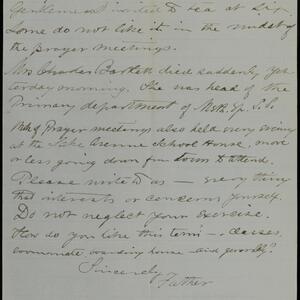 Gentlemen invited to tea at six.
Some do not like it in the midst of
the prayer meetings.
Mrs Charles Bartlett died suddenly yes-
terday morning. She was head of the
Primary department of Meth. Ep. S.S.
Week of Prayer meetings also held every evening
at the Lake Avenue School House, more
or less going down from down to attend.
Please write to us — every thing
that interests or concerns yourself.
Do not neglect your exercise.
How do you like this term — classes,
roommate boarding house and generally?
Sincerely
Father